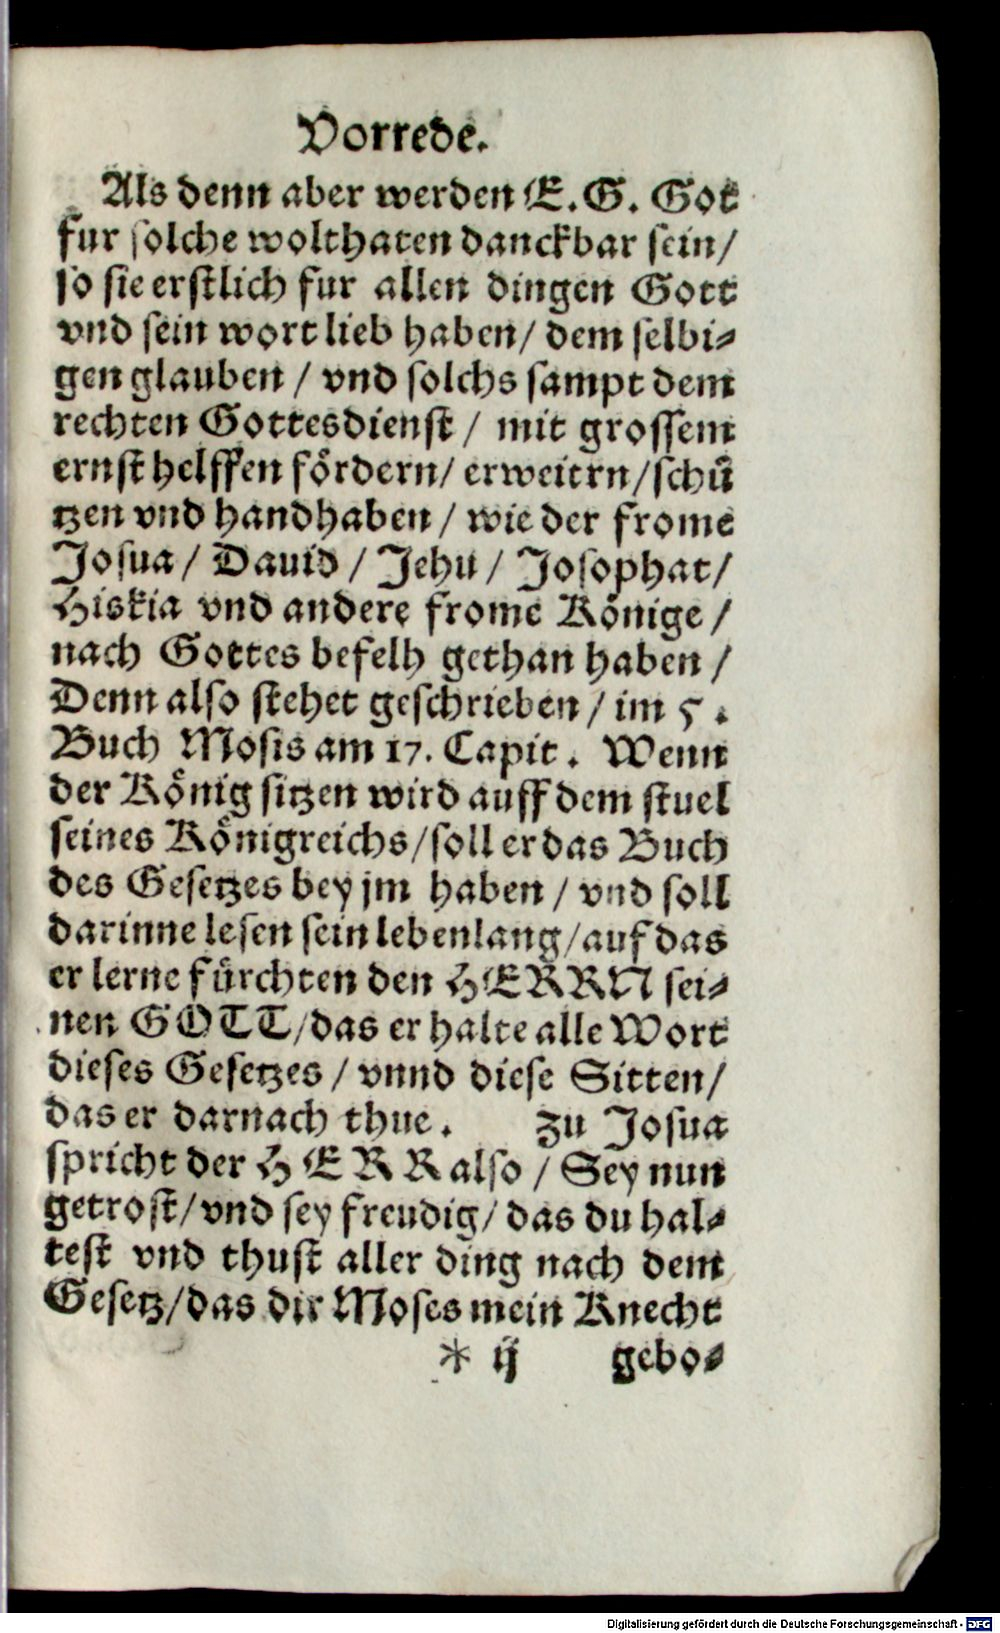 Vorrede.
Als denn aber werden E. G. Got
fur solche wolthaten danckbar sein/
so sie erstlich fur allen dingen Gott
vnd sein wort lieb haben/ dem selbi⸗
gen glauben / vnd solchs sampt dem
rechten Gottesdienst / mit grossem
ernst helffen fördern/ erweitrn/schü
tzen vnd handhaben / wie der frome
Josua / Dauid / Jehu / Josophat/
Hiskia vnd andere frome Könige /
nach Gottes befelh gethan haben /
Denn also stehet geschrieben / im 5.
Buch Mosis am 17. Capit. Wenn
der König sitzen wird auff dem stuel
seines Königreichs/soll er das Buch
des Gesetzes bey jm haben / vnd soll
darinne lesen sein lebenlang/auf das
er lerne fürchten den HERRN sei⸗
nen GOTT/das er halte alle Wort
dieses Gesetzes / vnnd diese Sitten/
das er darnach thue. zu Josua
spricht der HERR also / Sey nun
getrost/vnd sey freudig/ das du hal⸗
test vnd thust aller ding nach dem
Gesetz/das dir Moses mein Knecht
* ij gebo⸗
Digitalisierung gefördert durch die Deutsche Forschungsgemeinschaft - DFG